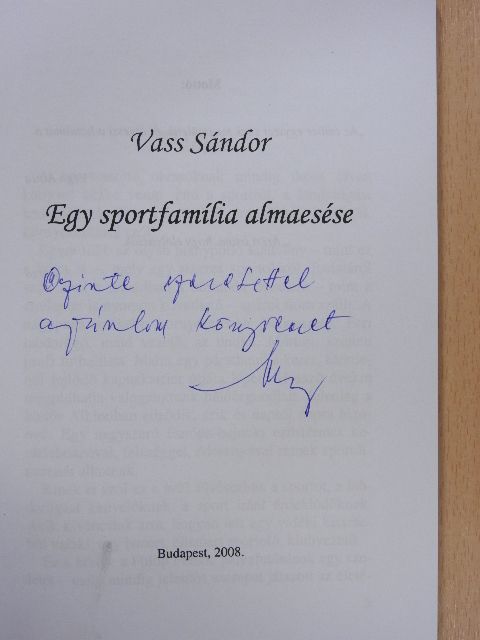 Vass Sándor
Egy sportfamília almaesése
Őszinte szeretettel
ajánlom könyvemet
Budapest, 2008.